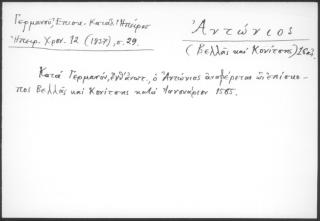 Γερμανοῦ, Ἐπισκ. Κατάλ. Ἠπείρου
Ἠπειρ. Χρον. 12 (1937), σ. 29.
Ἀντώνιος
(Βελλᾶς καὶ Κονίτσης)
Κατὰ Γερμανόν, ἐνθ' ἀνωτ., ὁ Ἀντώνιος ἀναφέρεται ὡς ἐπίσκο-
πος Βελλᾶς καὶ Κονίτσης κατὰ Ἰανουάριον 1565.